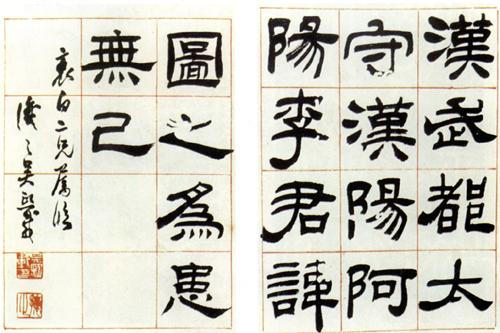 漢武都太
守漢陽阿
陽李君諱
圖之爲患
無已
白二兄屬臨
讓之吳熙載